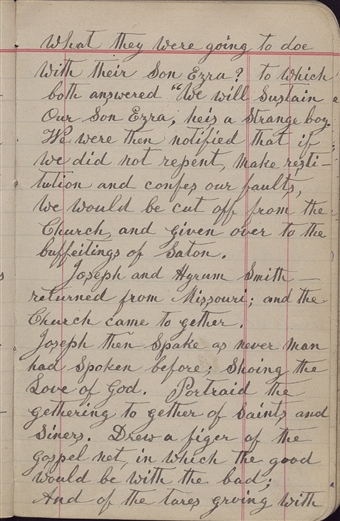 what they were going to doe
with their Son Ezra? to which
both answered "We will Sustain
Our Son Ezra, heis a Strange boy.
We were then notified that if
we did not repent, make resti-
tution and confes our faults,
we would be cut off from the
Church, and given over to the
buffeitings of Saton.
Joseph and Hyrum Smith
returned from Missouri; and the
Church came to gether.
Joseph then Spake as never man
had Spoken before; Shoing the
Love of God. Portraid the
gethering to gether of Saints and
Siners. Drew a figer of the
gospel net, in which the good
would be with the bad;
And of the tares groing with